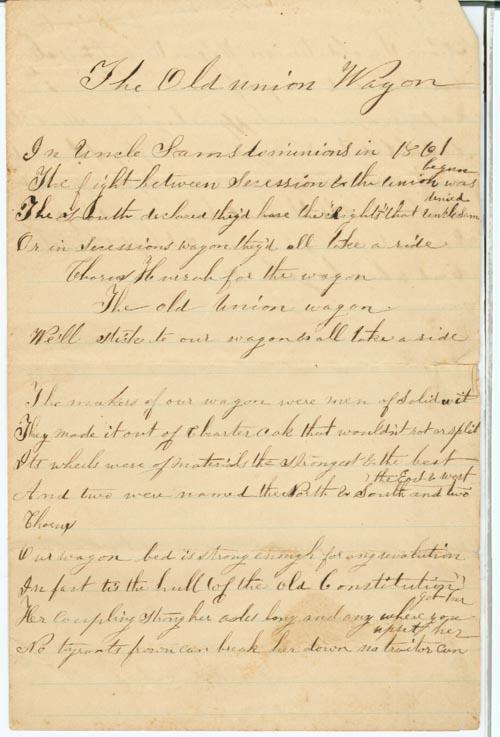 The Old union Wagon
In Uncle Sams dominions in 1861
The fight between Secession & the union was begun
The South declared they'd have the "rights" that uncle Sam denied
Or in Secessions wagon they'd all take a ride
Chorus Hurrah for the wagon
The old union wagon
We'll stick to our wagon & all take a ride
The makers of our wagon were men of solid wit
They made it out of Charter Oak that wouldn't rot or split
Its wheels were of materials the strongest & the best
And two were named the North & South and two the East & west
Chorus
Our wagon bed is strong enough for any revolution
In fact tis the hull of the old Constitution
Her coupling strong her axles long and any where you get her
No tyrants frown can break her down no traitor can upset her